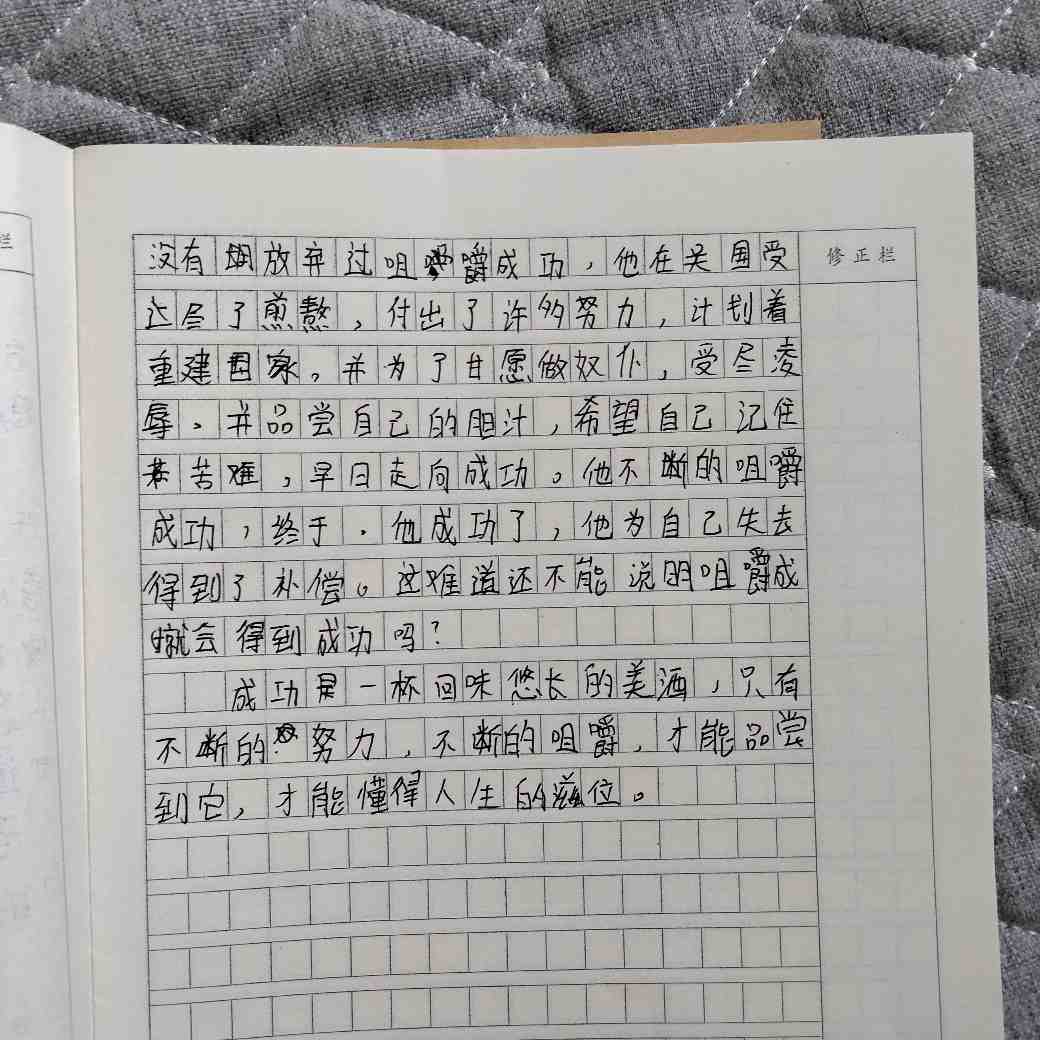 没有放弃过咀嚼成功，他在吴国受
尽了煎熬，付出了许多努力，计划着
重建国家。并为了甘愿做奴仆，受尽凌
辱。并品尝自己的胆汁，希望自己记住
苦难，早日走向成功。他不断的咀嚼
成功，终于．他成功了，他为自己失去
得到了补偿。这难道还不能说明咀嚼成
就会得到成功吗？
成功是一杯回味悠长的美酒，只有
不断的努力，不断的咀嚼，才能品尝
到它，才能懂得人生的滋位。
修正栏
栏